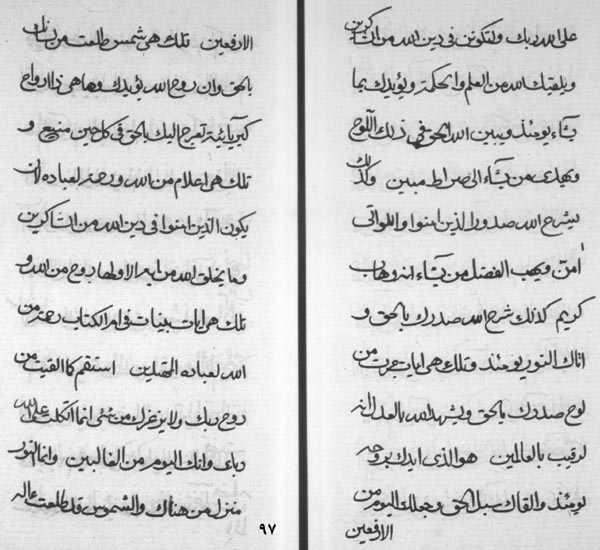 على الله ربك ولتكونن فى دين الله من الشاكرين
ويلقيك الله من العلم والحكمة ويؤيدك بما
يشاء يومئذ ويبين الله الحق فى ذلك اللوح
ويهدى من يشاء الى صراط مبين وكذلك
يشرح الله صدور الذين امنوا واللواتى
امن ويهب الفضل من يشاء انه وهاب
كريم كذلك شرح الله صدرك بالحق و
اتاك النور يومئذ وتلك هى ايات جرت من
لوح صدرك بالحق ويشهد الله بالعدل انه
لرقيب بالعالمين هو الذى ايدك بروحه
يومئذ والقاك سبل الحق وجعلك اليوم من
الارفعين
الارفعين تلك هى شمس طلعت من
بالحق وان روح الله يؤيدك وها هى ذا ارواح
كبريائية تعرج اليك بالحق فى كل حين منيع و
تلك هى اعلام من الله ورحمة لعباده ان
يكون الذين امنوا فى دين الله من الشاكرين
وما يخلق الله من اية الا ولها روح من الله و
تلك هى ايات بينات فى ام الكتاب رحمة من
الله لعباده المقبلين استقم كما القيت من
روح ربك ولا يزعزك من شئ انما اتكلت على الله
ربى وانك اليوم من الغالبين وانما النور
منزل من هناك والشموس قد طلعت
٩٧